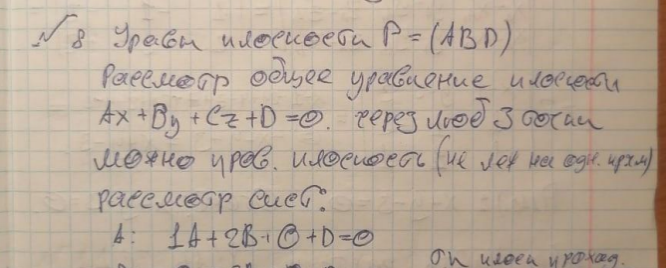 №8 Уравн плоскости P = (ABD)
Рассмотр общее уравнение плоскости
Ax + By + Cz + D = 0. через люб 3 точки
можно пров. плоскость (не леж на одн. прям)
рассмотр сист:
A: 1A + 2B + C + D = 0
эти плоси проход.